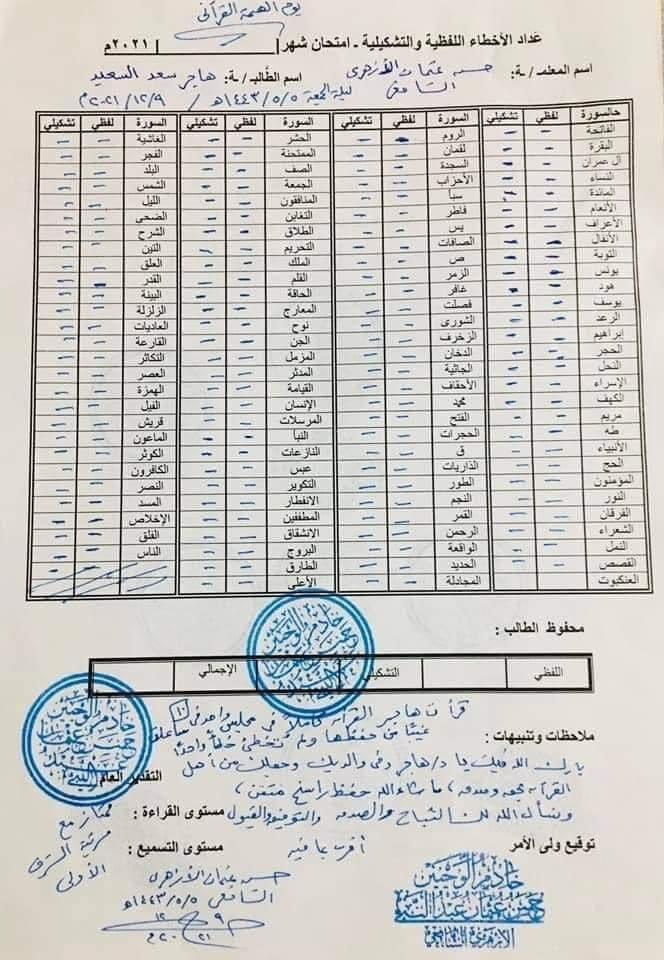 يوم الهمة القرآني
عداد الأخطاء اللفظية والتشكيلية ـ امتحان شهر | | ٢٠٢١م
اسم المعلمـ /ـة: حسن عثمان الأزهري الشافعي اسم الطَّالبـ /ـة: هاجر سعد السعيد
ليلة الجمعة ١٤٤٣/٥/٥هـ / ٢٠٢١/١٢/٩م
السورة لفظي تشكيلي السورة لفظي تشكيلي السورة لفظي تشكيلي السورة لفظي تشكيلي
الفاتحة الروم الحشر الغاشية
البقرة لقمان الممتحنة الفجر
آل عمران السجدة الصف البلد
النساء الأحزاب الجمعة الشمس
المائدة سبأ المنافقون الليل
الأنعام فاطر التغابن الضحى
الأعراف يس الطلاق الشرح
الأنفال الصافات التحريم التين
التوبة ص الملك العلق
يونس الزمر القلم القدر
هود غافر الحاقة البينة
يوسف فصلت المعارج الزلزلة
الرعد الشورى نوح العاديات
إبراهيم الزخرف الجن القارعة
الحجر الدخان المزمل التكاثر
النحل الجاثية المدثر العصر
الإسراء الأحقاف القيامة الهمزة
الكهف محمد الإنسان الفيل
مريم الفتح المرسلات قريش
طه الحجرات النبأ الماعون
الأنبياء ق النازعات الكوثر
الحج الذاريات عبس الكافرون
المؤمنون الطور التكوير النصر
النور النجم الانفطار المسد
الفرقان القمر المطففين الإخلاص
الشعراء الرحمن الانشقاق الفلق
النمل الواقعة البروج الناس
القصص الحديد الطارق
العنكبوت المجادلة الأعلى
محفوظ الطالب :
اللفظي التشكيلي الإجمالي
قرأت هاجر القرآن كاملاً في مجلس واحد في ١٠ ساعات
ملاحظات وتنبيهات : غيبًا من حفظها ولم تخطئ خطأ واحدًا
بارك الله فيك يا د/هاجر وفي والديك وجعلك من أهل
التقدير العام :
القرآن بحقه وصدقه، ما شاء الله حفظ راسخ متقن،
ونسأل الله لك الثبات والصدق والتوفيق والقبول
مستوى القراءة : ممتاز مع مرتبة الشرف الأولى
توقيع ولى الأمر
مستوى التسميع :
حسن عثمان الأزهري
الشافعي ١٤٤٣/٥/٥هـ
٩ ١٢ ٢٠٢١م
خادم الوحيين
حسن عثمان عبد النبي
الأزهري الشافعي